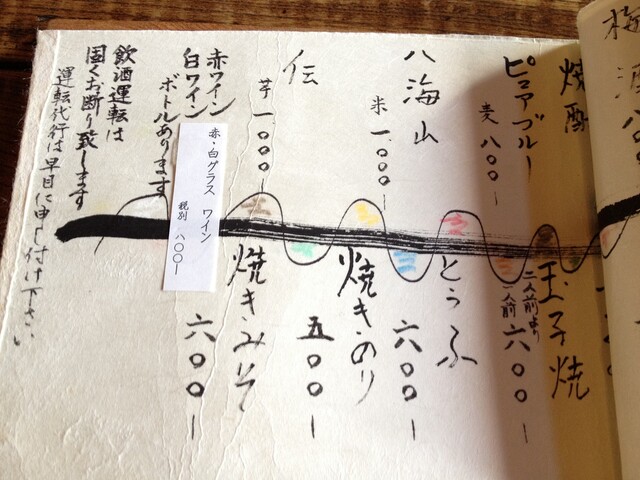 焼酎
ピュアブルー
麦 八〇〇ー
八海山
米 一、〇〇〇ー
伝
芋 一、〇〇〇ー
赤ワイン
白ワイン
ボトルあります
赤・白グラス ワイン
税別 八〇〇ー
飲酒運転は
固くお断り致します
運転代行は早目に申し付け下さい
玉子焼
二人前より
一人前 六〇〇ー
とうふ
六〇〇ー
焼きのり
五〇〇ー
焼きみそ
六〇〇ー